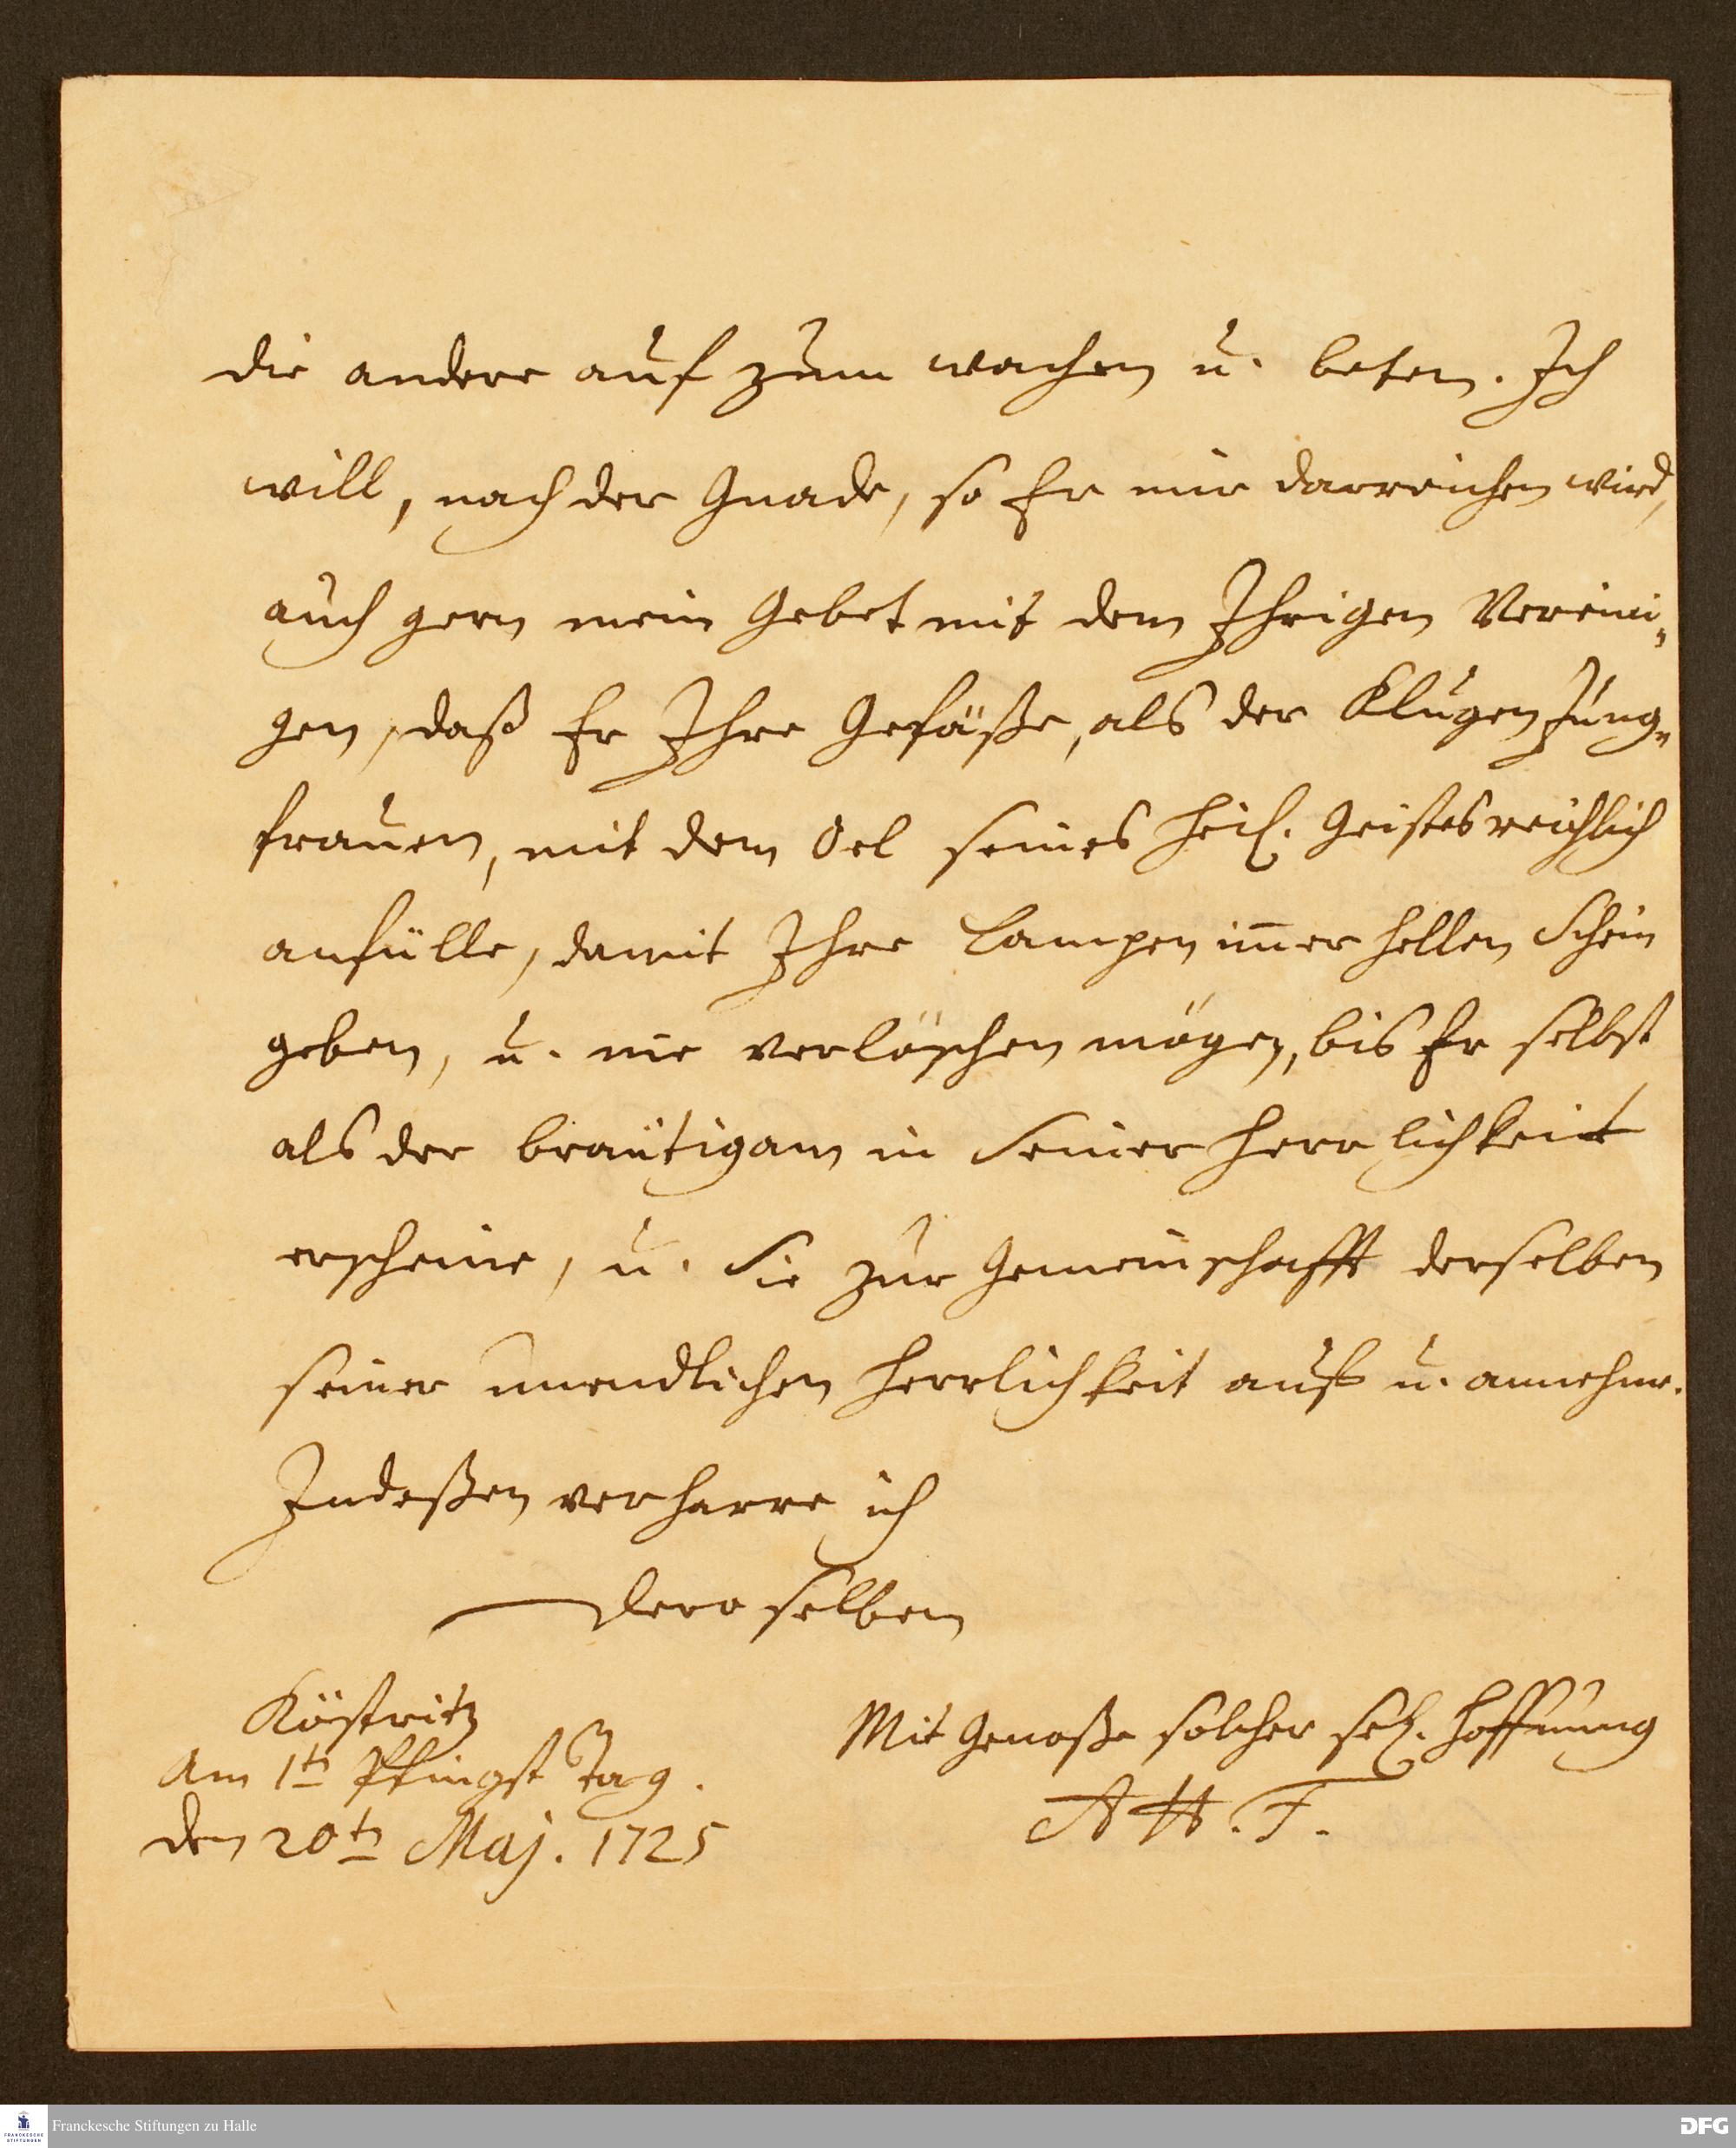 die andere auf zum wachen u. beten. Ich
will, nach der Gnade, so Er mir darreichen wird,
auch gern mein Gebet mit dem Ihrigen Vereini-
gen, daß Er Ihre Gefäße, als der Klugen Jung-
frauen, mit dem Oel seines heil. Geistes reichlich
anfülle, damit Ihre Lampen im̄er hellen Schein
geben, u. nie verlöschen mögen, bis Er selbst
als der bräutigam in Seiner Herrlichkeit
erscheine, u. Sie zur Gemeinschafft derselben
seiner unendlichen Herrlichkeit auf u. annehme.
Indeßen verharre ich
Deroselben
Köstritz
Mit Genoße solcher sel. Hoffnung
Am 1ten Pfingst Tag.
A H. F.
den 20ten Maj. 1725
Franckesche Stiftungen zu Halle
FRANCKESCHE
STIFTUNGEN
DFG